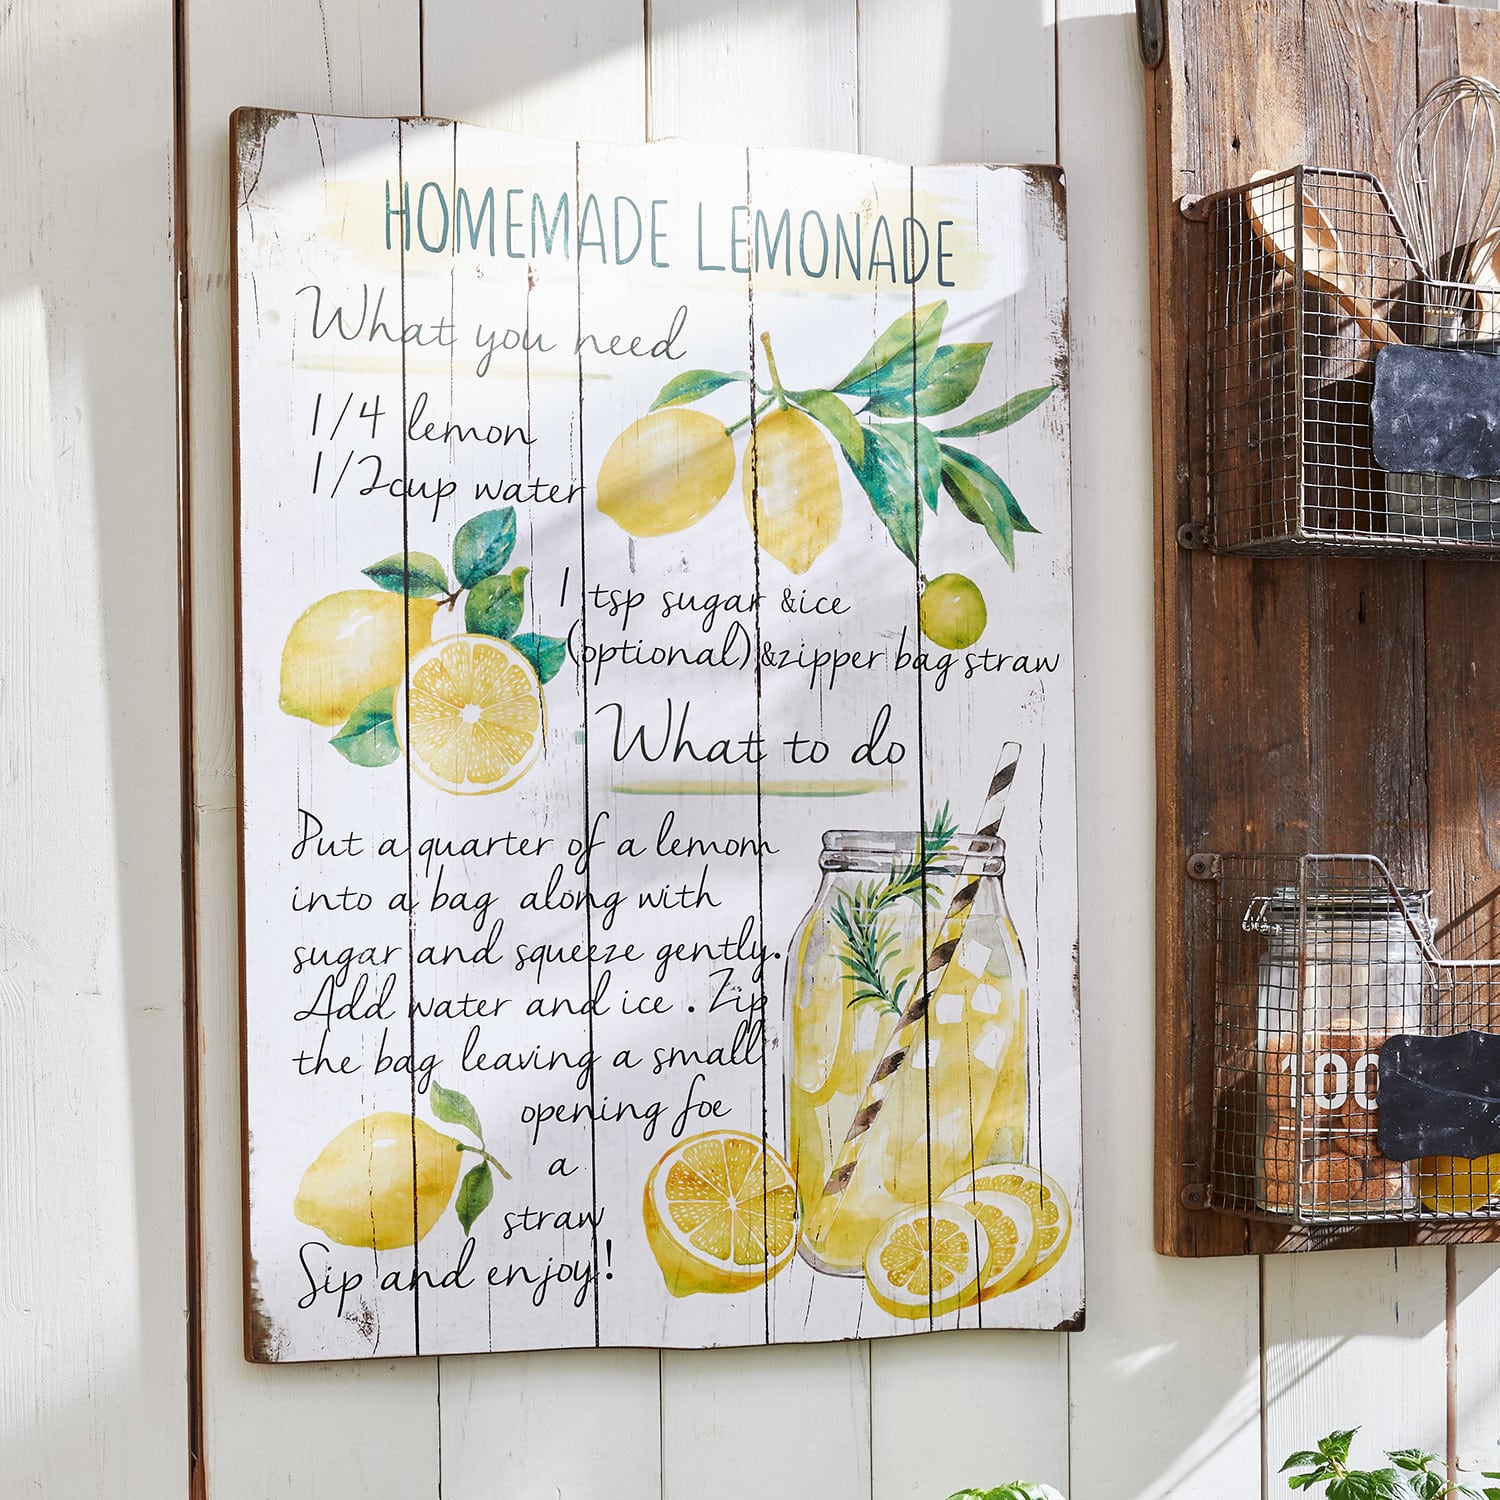 HOMEMADE LEMONADE
What you need
1/4 lemon
1/2cup water
1 tsp sugar &ice
(optional)&zipper bag straw
What to do
Put a quarter of a lemon
into a bag along with
sugar and squeeze gently.
Add water and ice . Zip
the bag leaving a small
opening foe
a
straw
Sip and enjoy!
100